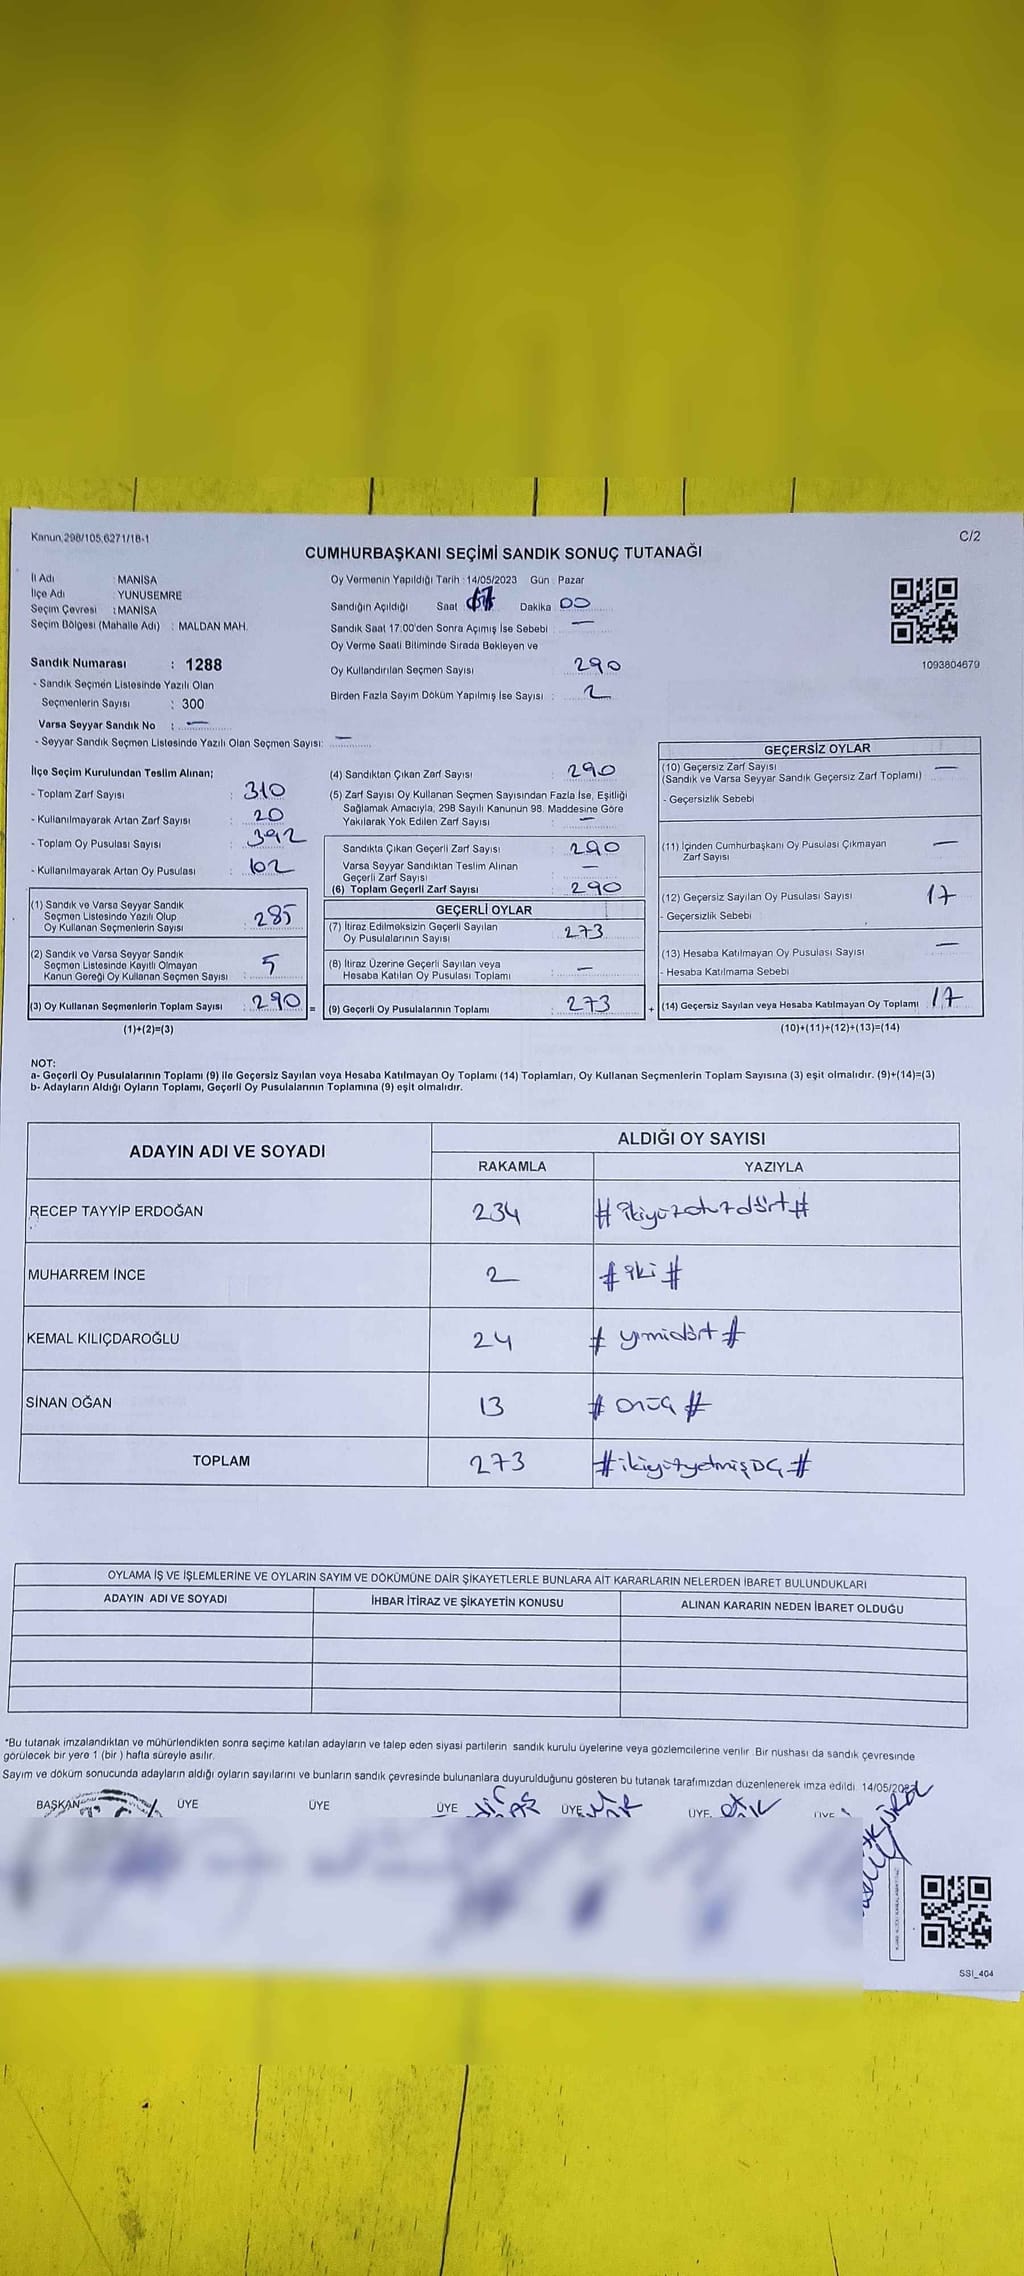 Kanun.298/105.6271/18-1
C/2
CUMHURBAŞKANI SEÇİMİ SANDIK SONUÇ TUTANAĞI
İl Adı : MANİSA
İlçe Adı : YUNUSEMRE
Seçim Çevresi : MANİSA
Seçim Bölgesi (Mahalle Adı) : MALDAN MAH.
Sandık Numarası : 1288
- Sandık Seçmen Listesinde Yazılı Olan
Seçmenlerin Sayısı : 300
Varsa Seyyar Sandık No : —
- Seyyar Sandık Seçmen Listesinde Yazılı Olan Seçmen Sayısı: —
Oy Vermenin Yapıldığı Tarih : 14/05/2023 Gün : Pazar
Sandığın Açıldığı Saat 17 Dakika 00
Sandık Saat 17:00'den Sonra Açımış İse Sebebi : —
Oy Verme Saati Bitiminde Sırada Bekleyen ve
Oy Kullandırılan Seçmen Sayısı 290
Birden Fazla Sayım Döküm Yapılmış İse Sayısı : 2
1093804679
İlçe Seçim Kurulundan Teslim Alınan;
- Toplam Zarf Sayısı : 310
- Kullanılmayarak Artan Zarf Sayısı : 20
- Toplam Oy Pusulası Sayısı : 392
- Kullanılmayarak Artan Oy Pusulası : 102
(1) Sandık ve Varsa Seyyar Sandık
Seçmen Listesinde Yazılı Olup
Oy Kullanan Seçmenlerin Sayısı : 285
(2) Sandık ve Varsa Seyyar Sandık
Seçmen Listesinde Kayıtlı Olmayan
Kanun Gereği Oy Kullanan Seçmen Sayısı : 5
(3) Oy Kullanan Seçmenlerin Toplam Sayısı : 290
(1)+(2)=(3)
(4) Sandıktan Çıkan Zarf Sayısı : 290
(5) Zarf Sayısı Oy Kullanan Seçmen Sayısından Fazla İse, Eşitliği
Sağlamak Amacıyla, 298 Sayılı Kanunun 98. Maddesine Göre
Yakılarak Yok Edilen Zarf Sayısı : —
Sandıkta Çıkan Geçerli Zarf Sayısı : 290
Varsa Seyyar Sandıktan Teslim Alınan
Geçerli Zarf Sayısı —
(6) Toplam Geçerli Zarf Sayısı : 290
GEÇERLİ OYLAR
(7) İtiraz Edilmeksizin Geçerli Sayılan
Oy Pusulalarının Sayısı : 273
(8) İtiraz Üzerine Geçerli Sayılan veya
Hesaba Katılan Oy Pusulası Toplamı : —
= (9) Geçerli Oy Pusulalarının Toplamı : 273
GEÇERSİZ OYLAR
(10) Geçersiz Zarf Sayısı —
(Sandık ve Varsa Seyyar Sandık Geçersiz Zarf Toplamı)
- Geçersizlik Sebebi
(11) İçinden Cumhurbaşkanı Oy Pusulası Çıkmayan —
Zarf Sayısı
(12) Geçersiz Sayılan Oy Pusulası Sayısı 17
- Geçersizlik Sebebi
(13) Hesaba Katılmayan Oy Pusulası Sayısı —
- Hesaba Katılmama Sebebi
+ (14) Geçersiz Sayılan veya Hesaba Katılmayan Oy Toplamı 17
(10)+(11)+(12)+(13)=(14)
NOT:
a- Geçerli Oy Pusulalarının Toplamı (9) ile Geçersiz Sayılan veya Hesaba Katılmayan Oy Toplamı (14) Toplamları, Oy Kullanan Seçmenlerin Toplam Sayısına (3) eşit olmalıdır. (9)+(14)=(3)
b- Adayların Aldığı Oyların Toplamı, Geçerli Oy Pusulalarının Toplamına (9) eşit olmalıdır.
ADAYIN ADI VE SOYADI ALDIĞI OY SAYISI
RAKAMLA YAZIYLA
RECEP TAYYİP ERDOĞAN 234 # ikiyüzotuzdört #
MUHARREM İNCE 2 # iki #
KEMAL KILIÇDAROĞLU 24 # yirmidört #
SİNAN OĞAN 13 # onüç #
TOPLAM 273 # ikiyüzyetmişüç #
OYLAMA İŞ VE İŞLEMLERİNE VE OYLARIN SAYIM VE DÖKÜMÜNE DAİR ŞİKAYETLERLE BUNLARA AİT KARARLARIN NELERDEN İBARET BULUNDUKLARI
ADAYIN ADI VE SOYADI İHBAR İTİRAZ VE ŞİKAYETİN KONUSU ALINAN KARARIN NEDEN İBARET OLDUĞU
*Bu tutanak imzalandıktan ve mühürlendikten sonra seçime katılan adayların ve talep eden siyasi partilerin sandık kurulu üyelerine veya gözlemcilerine verilir. Bir nüshası da sandık çevresinde
görülecek bir yere 1 (bir ) hafta süreyle asılır.
Sayım ve döküm sonucunda adayların aldığı oyların sayılarını ve bunların sandık çevresinde bulunanlara duyurulduğunu gösteren bu tutanak tarafımızdan düzenlenerek imza edildi. 14/05/2023
BAŞKAN ÜYE ÜYE ÜYE ÜYE ÜYE ÜYE
SSI_404